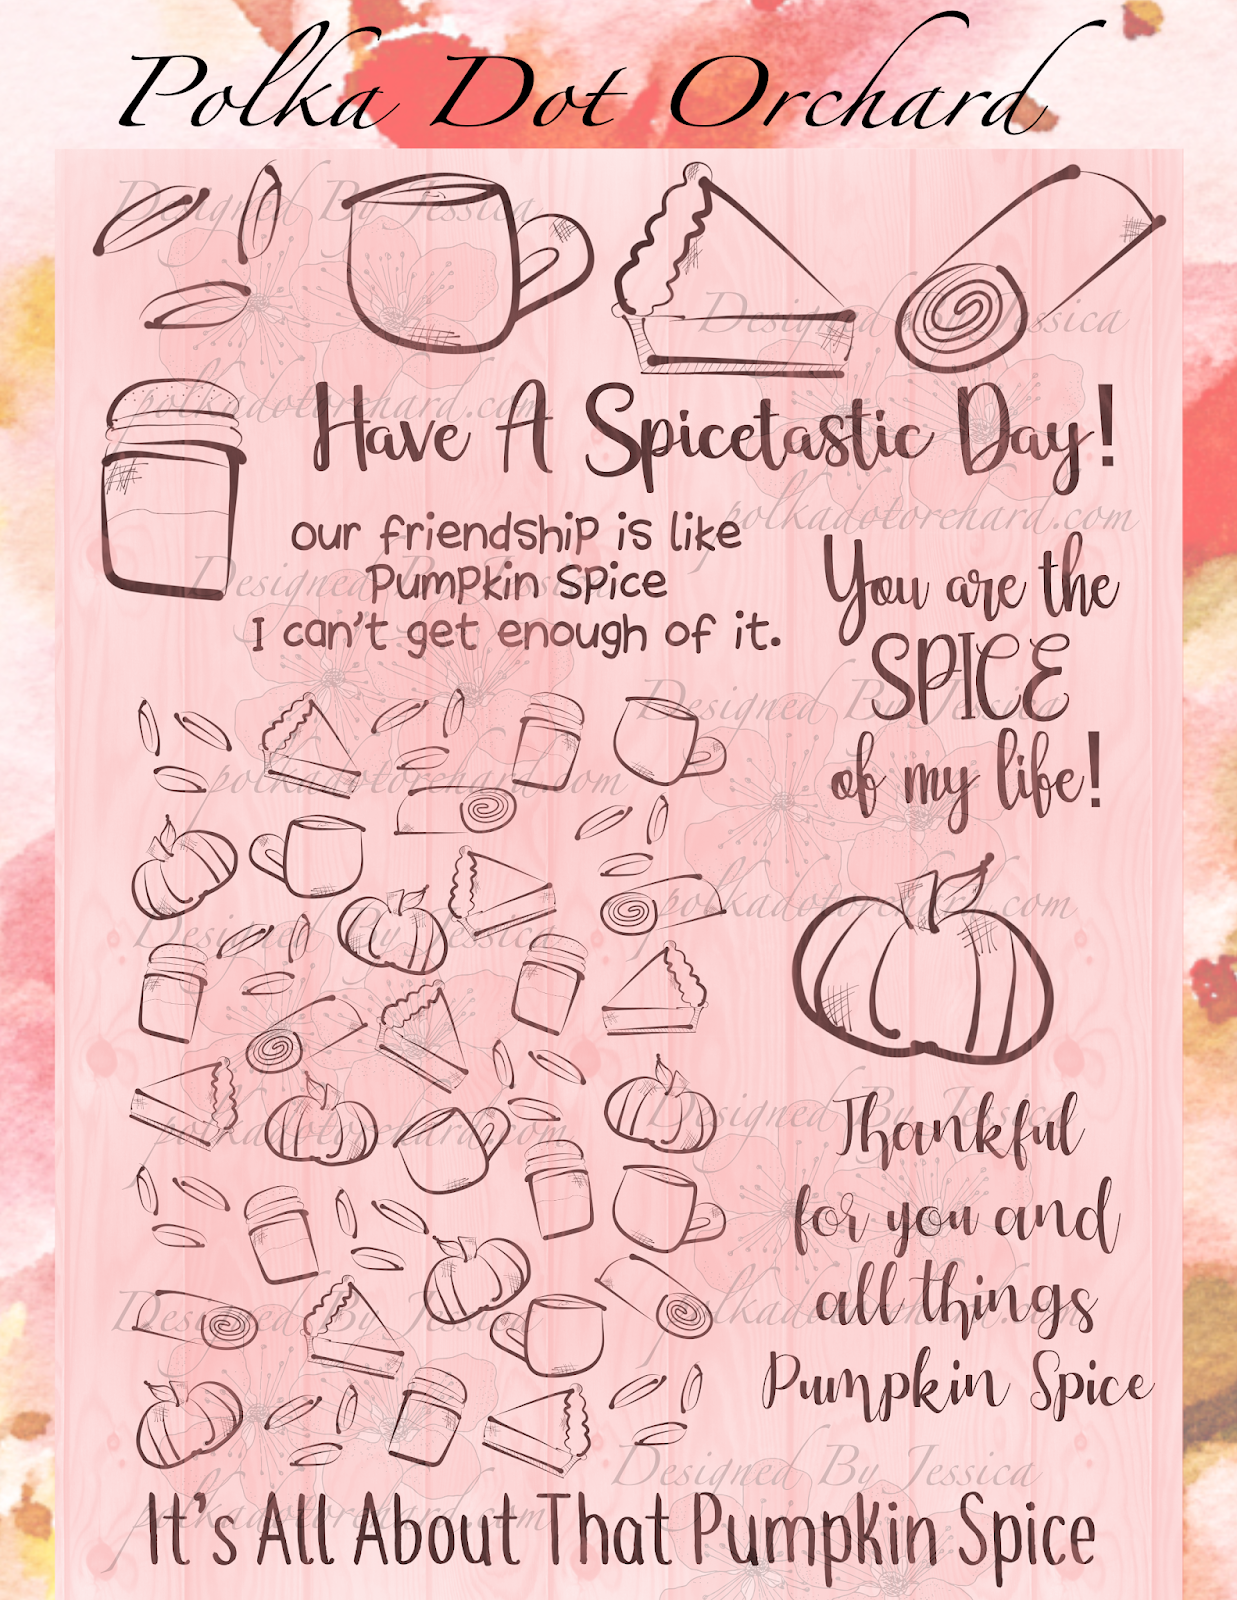 Polka Dot Orchard
Designed By Jessica
Designed By Jessica
polkadotorchard.com
Have A Spicetastic Day!
polkadotorchard.com
our friendship is like
Pumpkin Spice
I can't get enough of it.
Designed By Jessica
You are the
SPICE
of my life!
Designed By Jessica
polkadotorchard.com
polkadotorchard.com
Designed By Jessica
Designed By Jessica
polkadotorchard.com
Thankful
for you and
all things
Pumpkin Spice
polkadotorchard.com
Designed By Jessica
Designed By Jessica
polkadotorchard.com
It's All About That Pumpkin Spice
Designed By Jessica